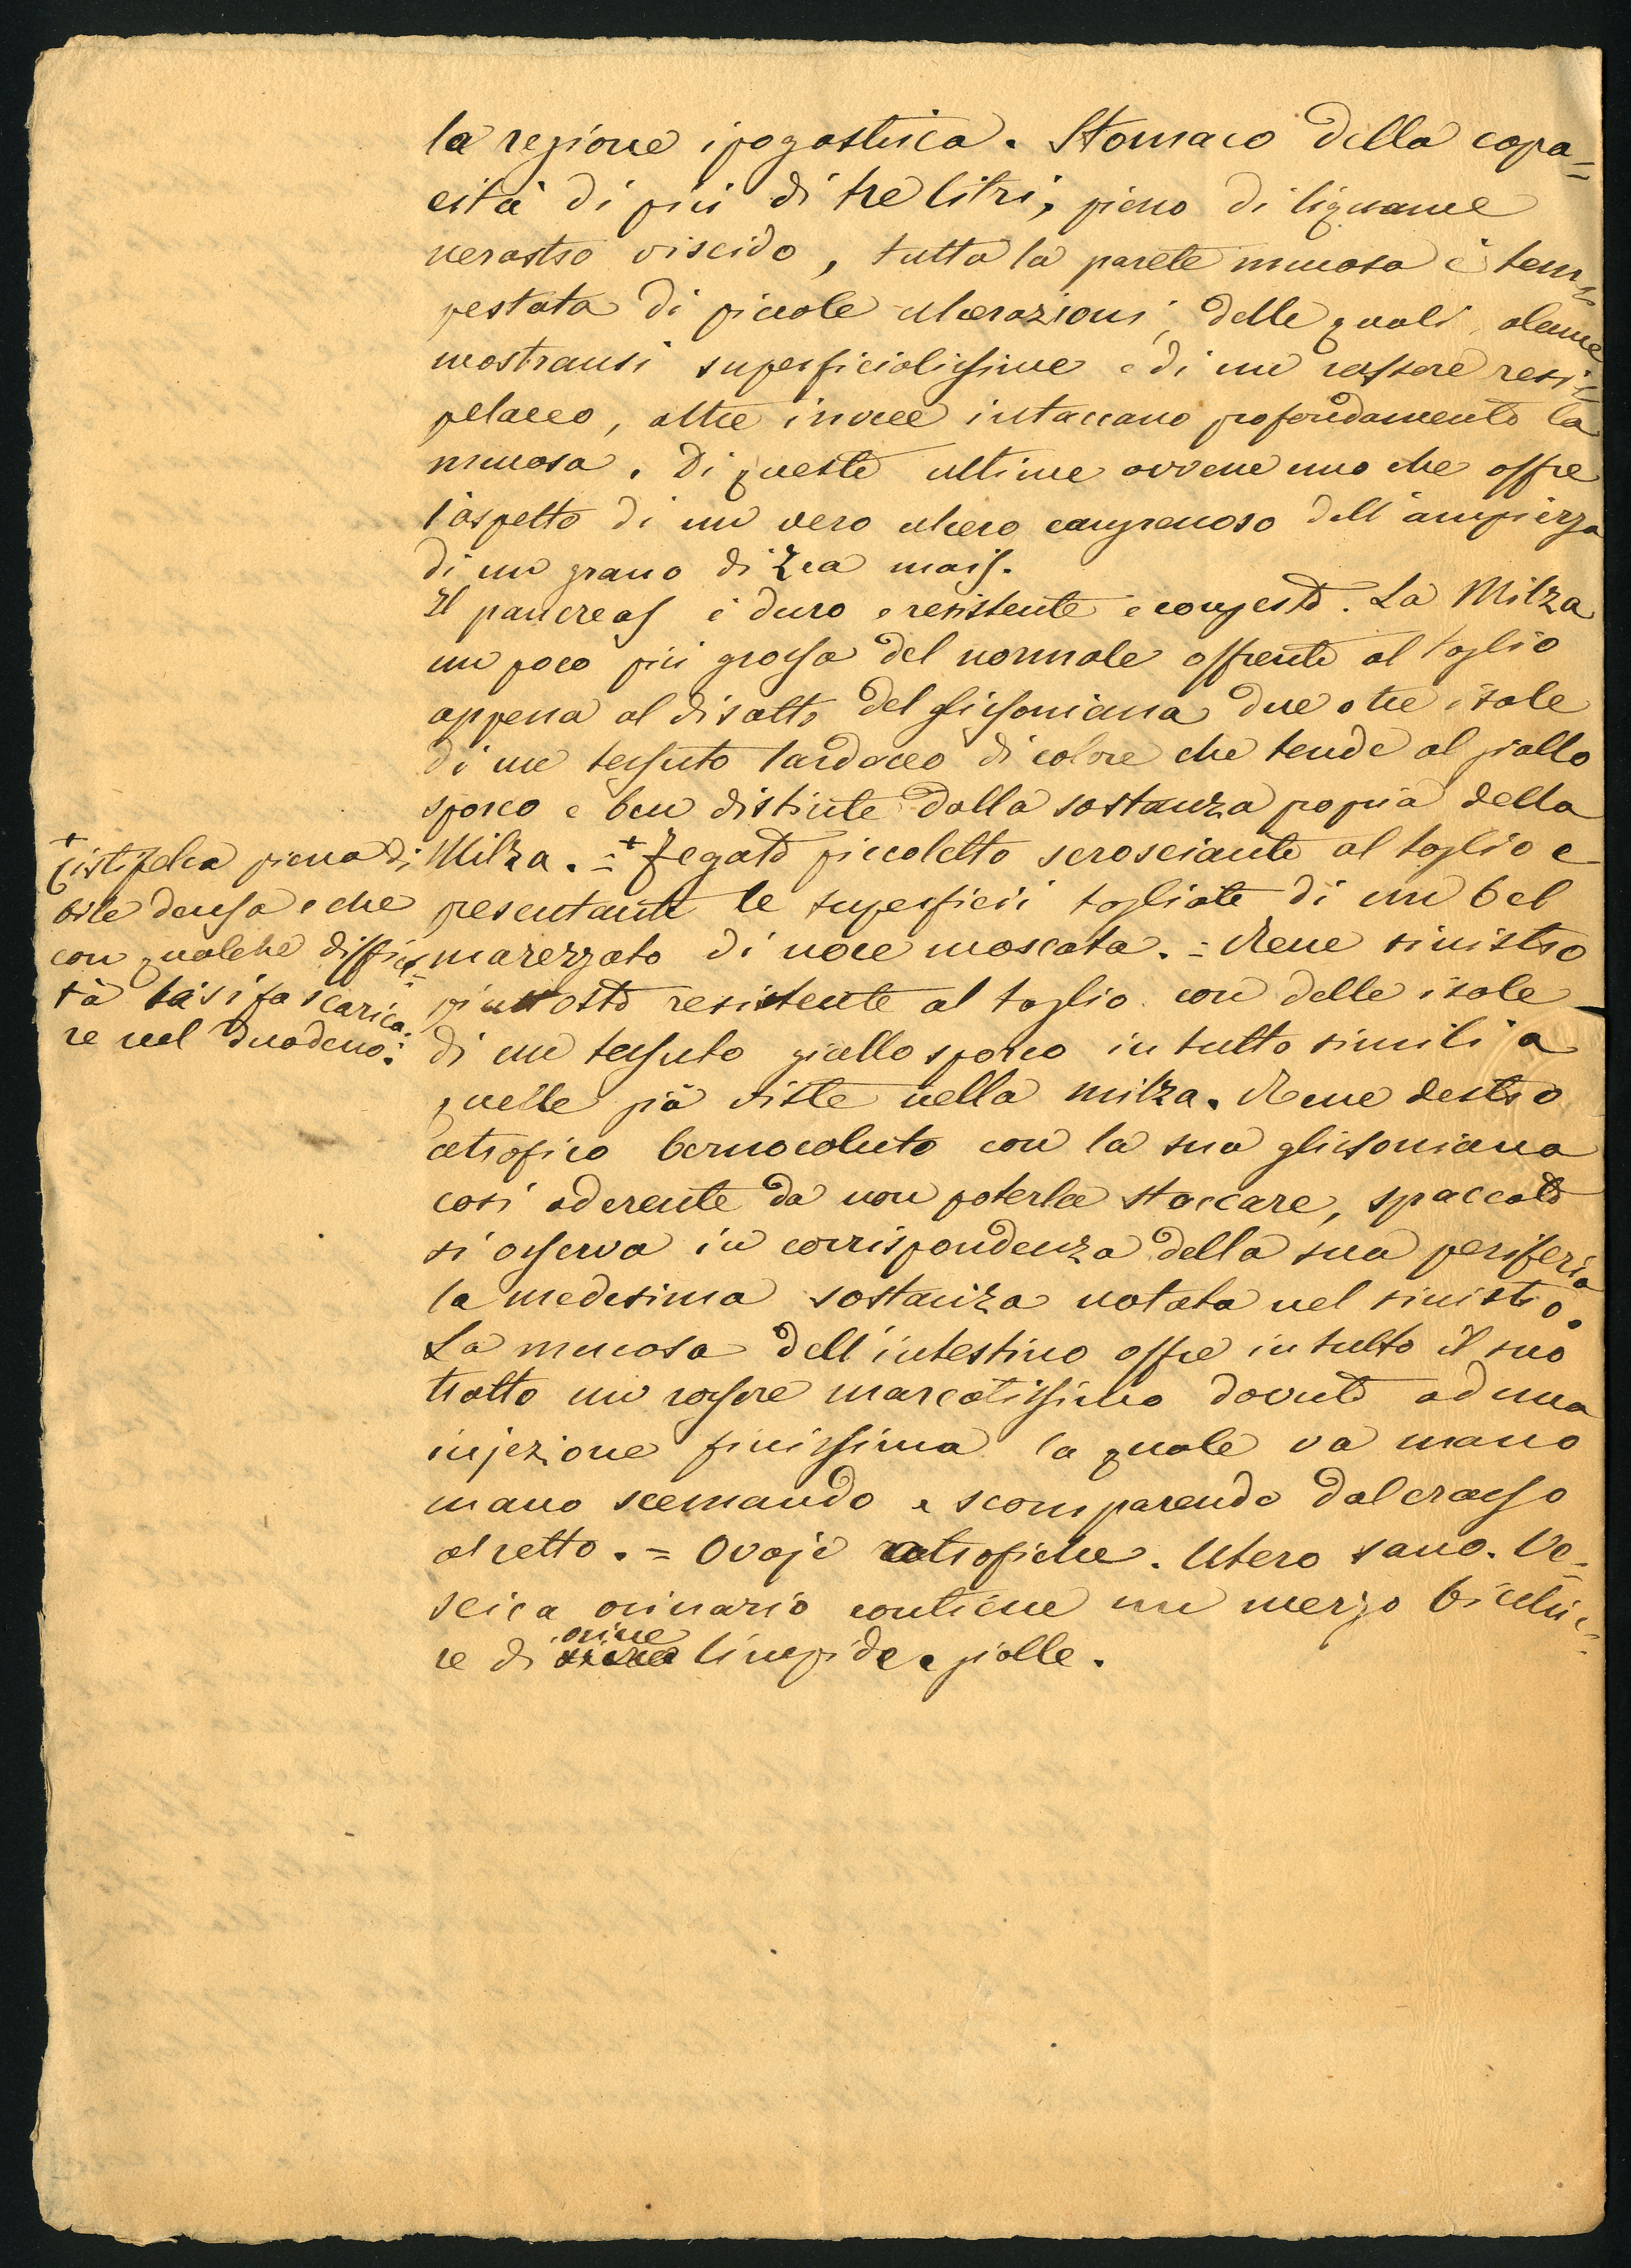 la regione ipogastrica. Stomaco della capa=
cità di più di tre litri, pieno di liquame
nerastro viscido, tutta la parete mucosa è tem=
pestata di piccole ulcerazioni, delle quali alcune
mostransi superficialissime e di un rossore resi=
pelaceo, altre invece intaccano profondamente la
mucosa. Di queste ultime avvene una che offre
l'aspetto di un vero ulcero cangrenoso dell'ampiezza
di un grano di Zea mais.
Il pancreas è duro e resistente e congesto. La Milza
un poco più grossa del normale offrente al taglio
appena al disotto del glissoniana due o tre isole
di un tessuto lardaceo di colore che tende al giallo
sporco e ben distinte dalla sostanza propria della
Milza. = + Fegato piccoletto scrosciante al taglio e
presentante le superfici tagliate di un bel
marezzato di noce moscata. = Rene sinistro
piuttosto resistente al taglio con delle isole
di un tessuto giallo sporco in tutto simili a
quelle già viste nella milza. Rene destro
atrofico bernocoluto con la sua glissoniana
così aderente da non poterla staccare, spaccato
si osserva in corrispondenza della sua periferia
la medesima sostanza notata nel sinistro.
La mucosa dell'intestino offre in tutto il suo
tratto un rossore marcatissimo dovuto ad una
injezione finissima la quale va mano
mano scemando e scomparendo dal crasso
al retto. = Ovaje atrofiche. Utero sano. Ve=
scica orinario contiene un mezzo bicchie=
re di orine limpide e gialle.
+ Cistifelea piena di
bile densa e che
con qualche difficol=
tà la si fa scarica=
re nel duodeno: